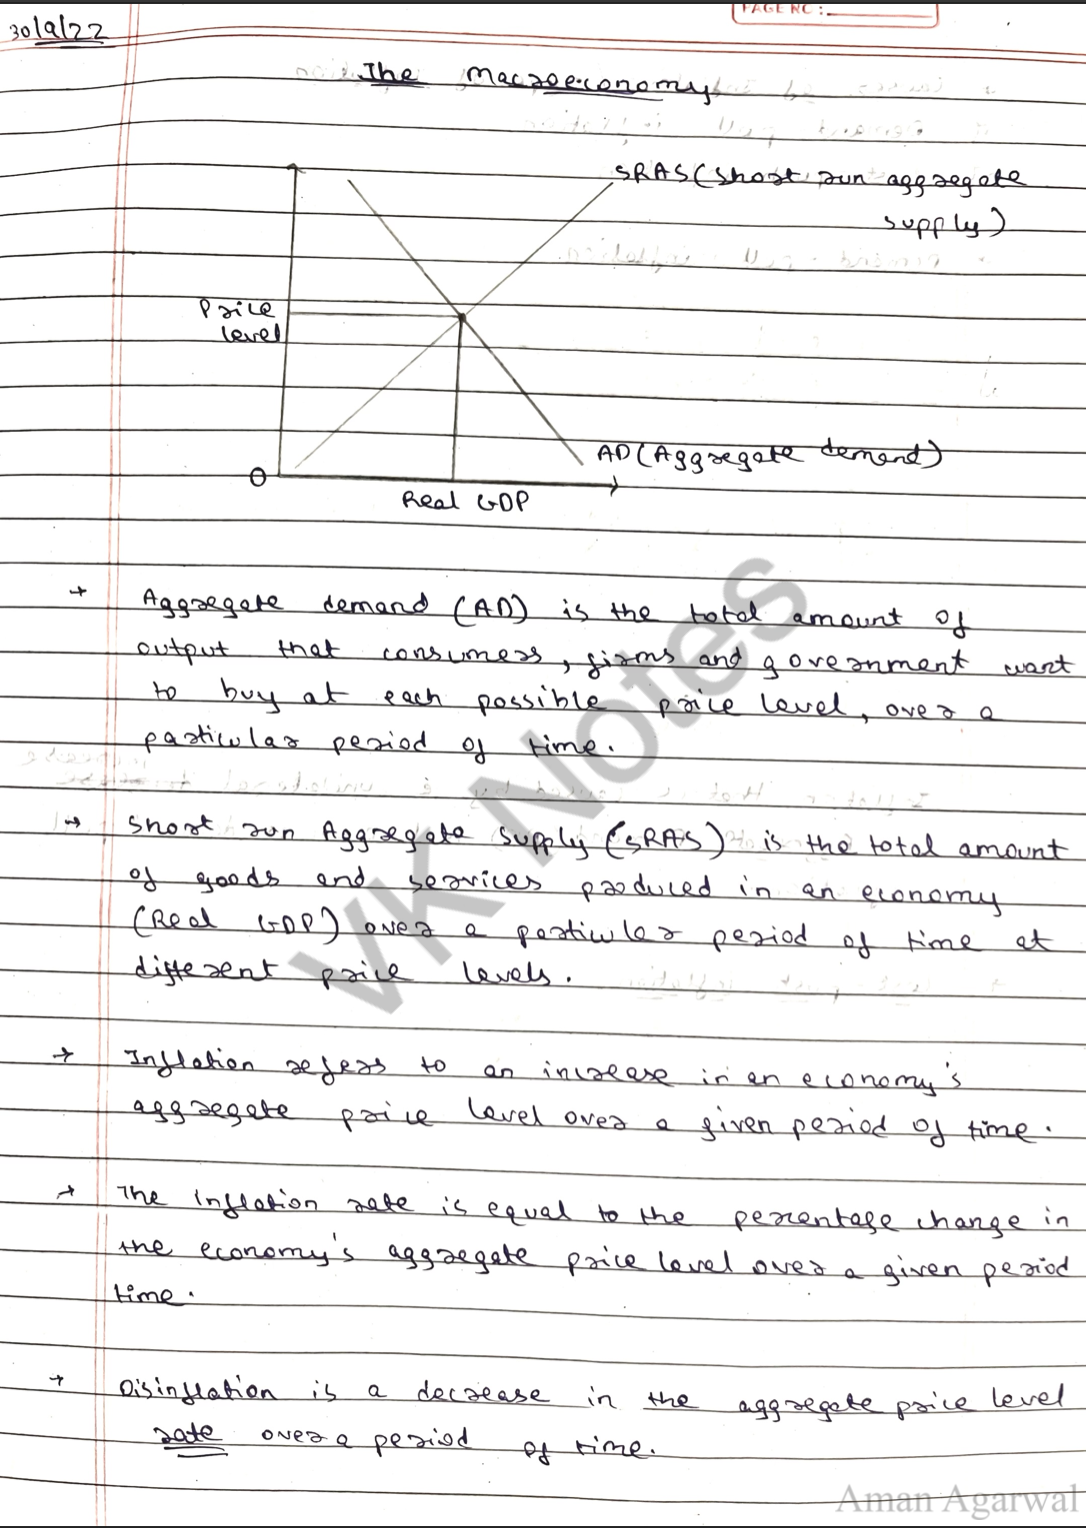 PAGE NO:
30/9/22
The Macroeconomy
SRAS (Short run aggregate
supply)
Price
level
AD (Aggregate demand)
O
Real GDP
→ Aggregate demand (AD) is the total amount of
output that consumers, firms and government want
to buy at each possible price level, over a
particular period of time.
→ Short run Aggregate Supply (SRAS) is the total amount
of goods and services produced in an economy
(Real GDP) over a particular period of time at
different price levels.
→ Inflation refers to an increase in an economy's
aggregate price level over a given period of time.
→ The inflation rate is equal to the percentage change in
the economy's aggregate price level over a given period
time.
→ Disinflation is a decrease in the aggregate price level
rate over a period of time.
VK Notes
Aman Agarwal